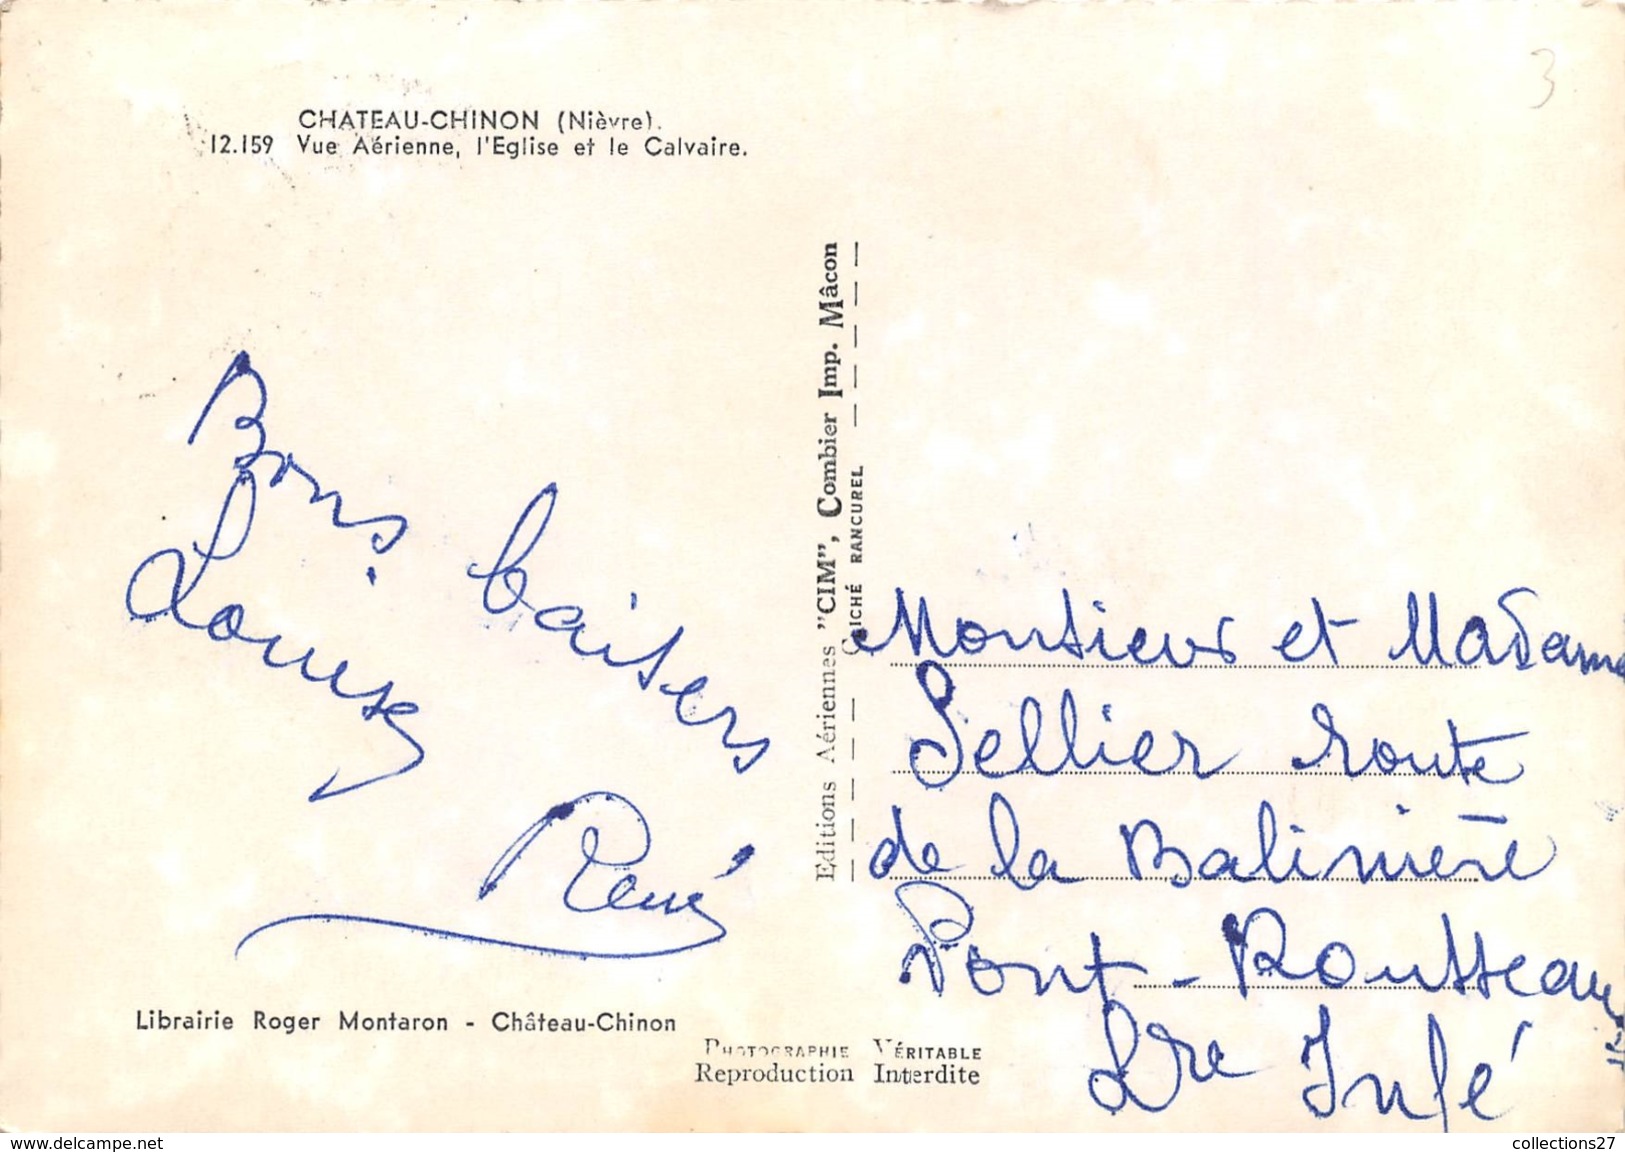 3
CHATEAU-CHINON (Nièvre).
12.159 Vue Aérienne, l'Eglise et le Calvaire.
Bons baisers
Louise
René
Librairie Roger Montaron - Château-Chinon
Editions Aériennes "CIM", Combier Imp. Mâcon
CLICHÉ RANCUREL
Monsieur et Madame
Sellier route
de la Balinière
Pont-Rousseau
Lre Infé
PHOTOGRAPHIE VÉRITABLE
Reproduction Interdite
www.delcampe.net
collections27